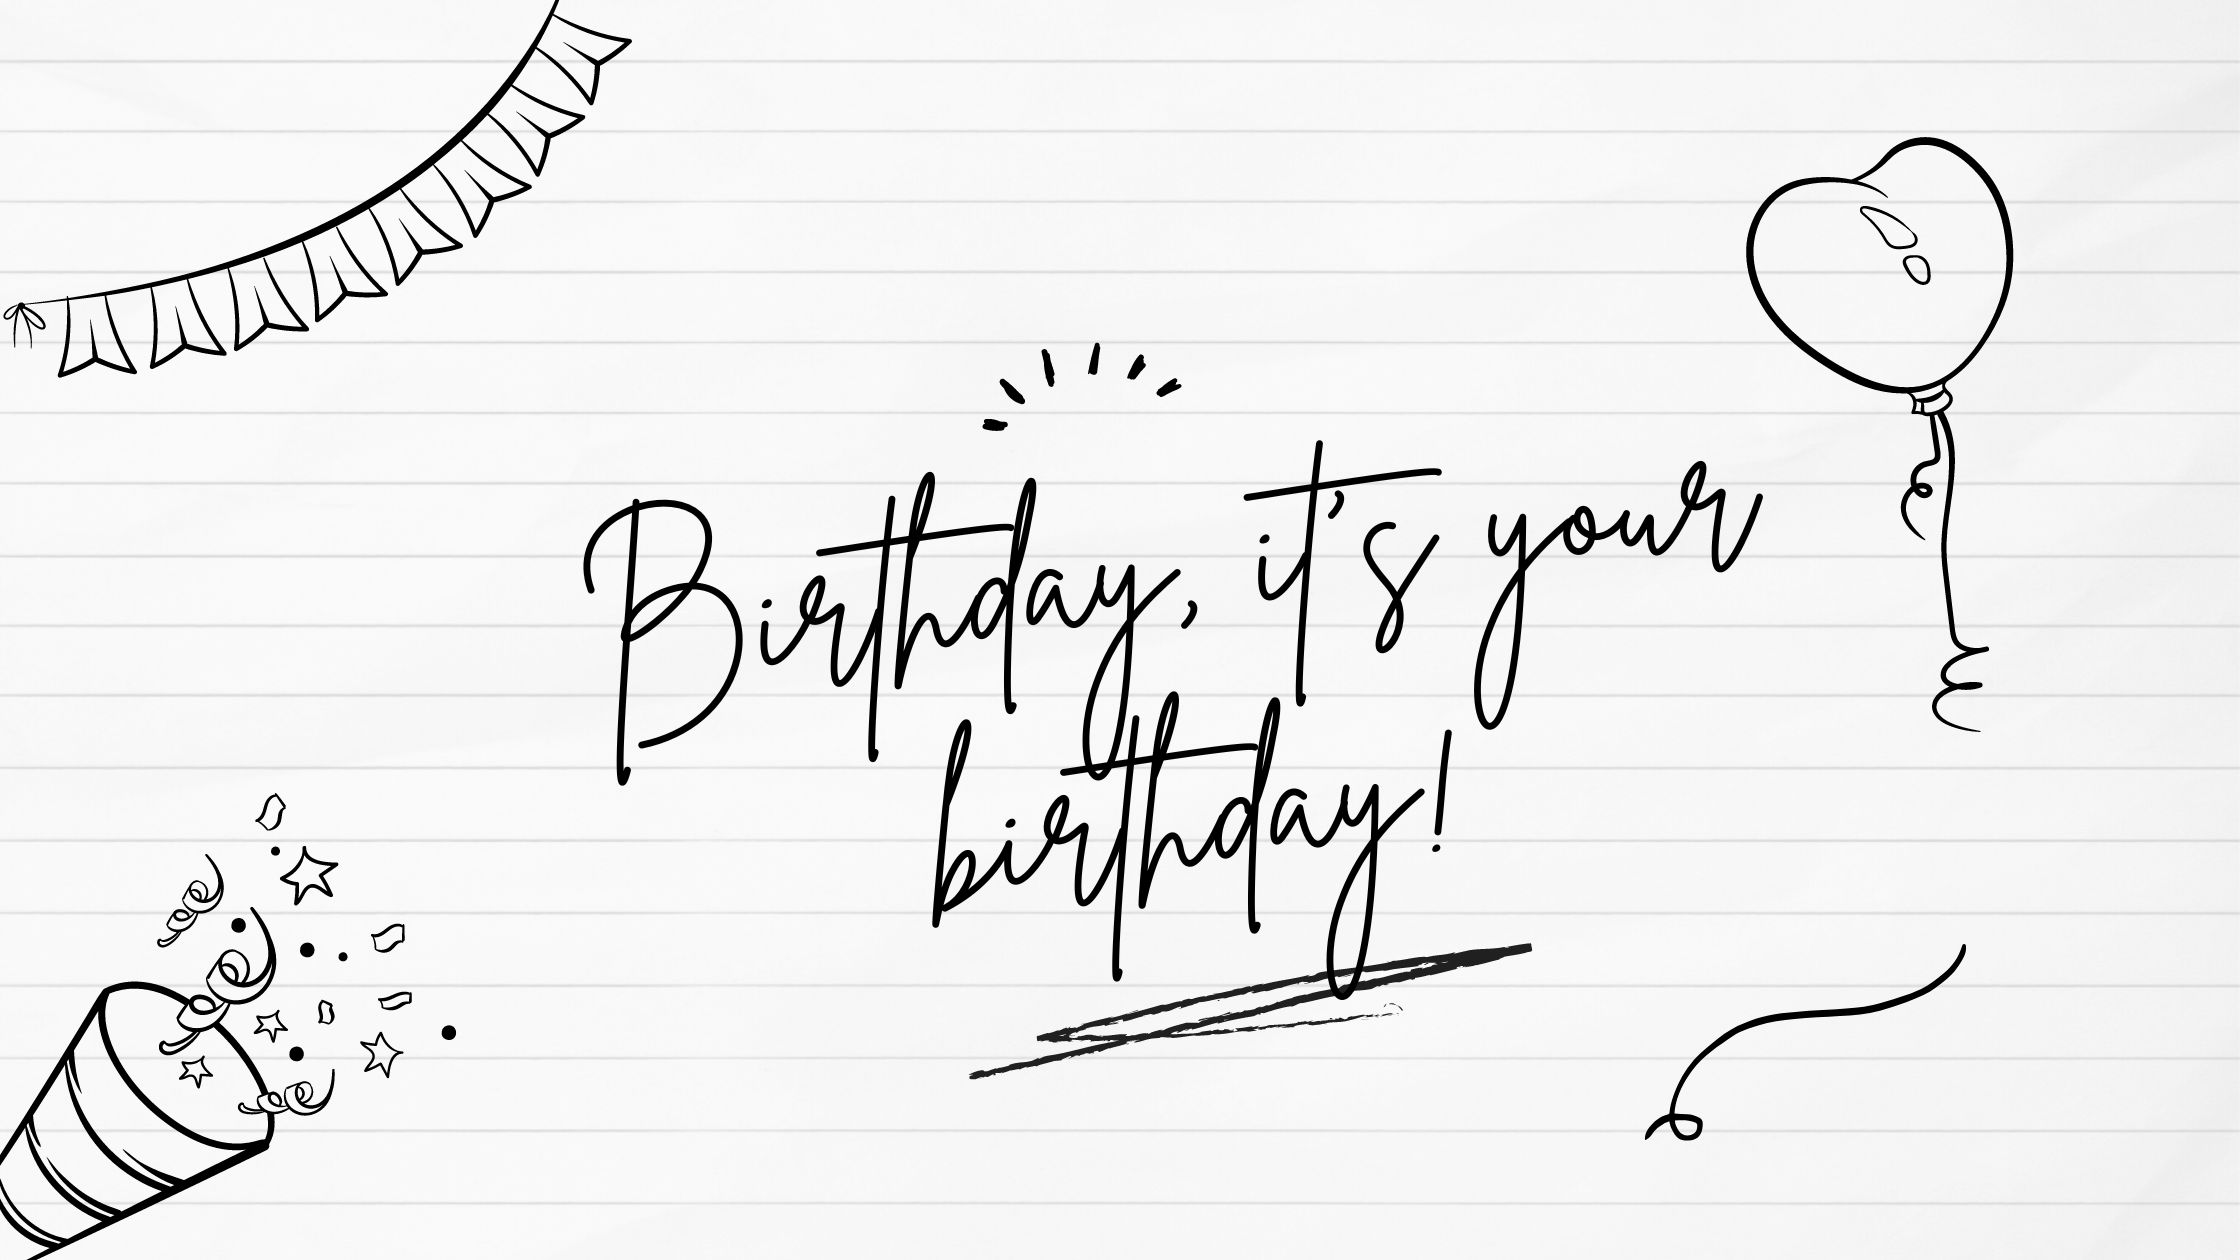 Birthday, it's your
birthday!